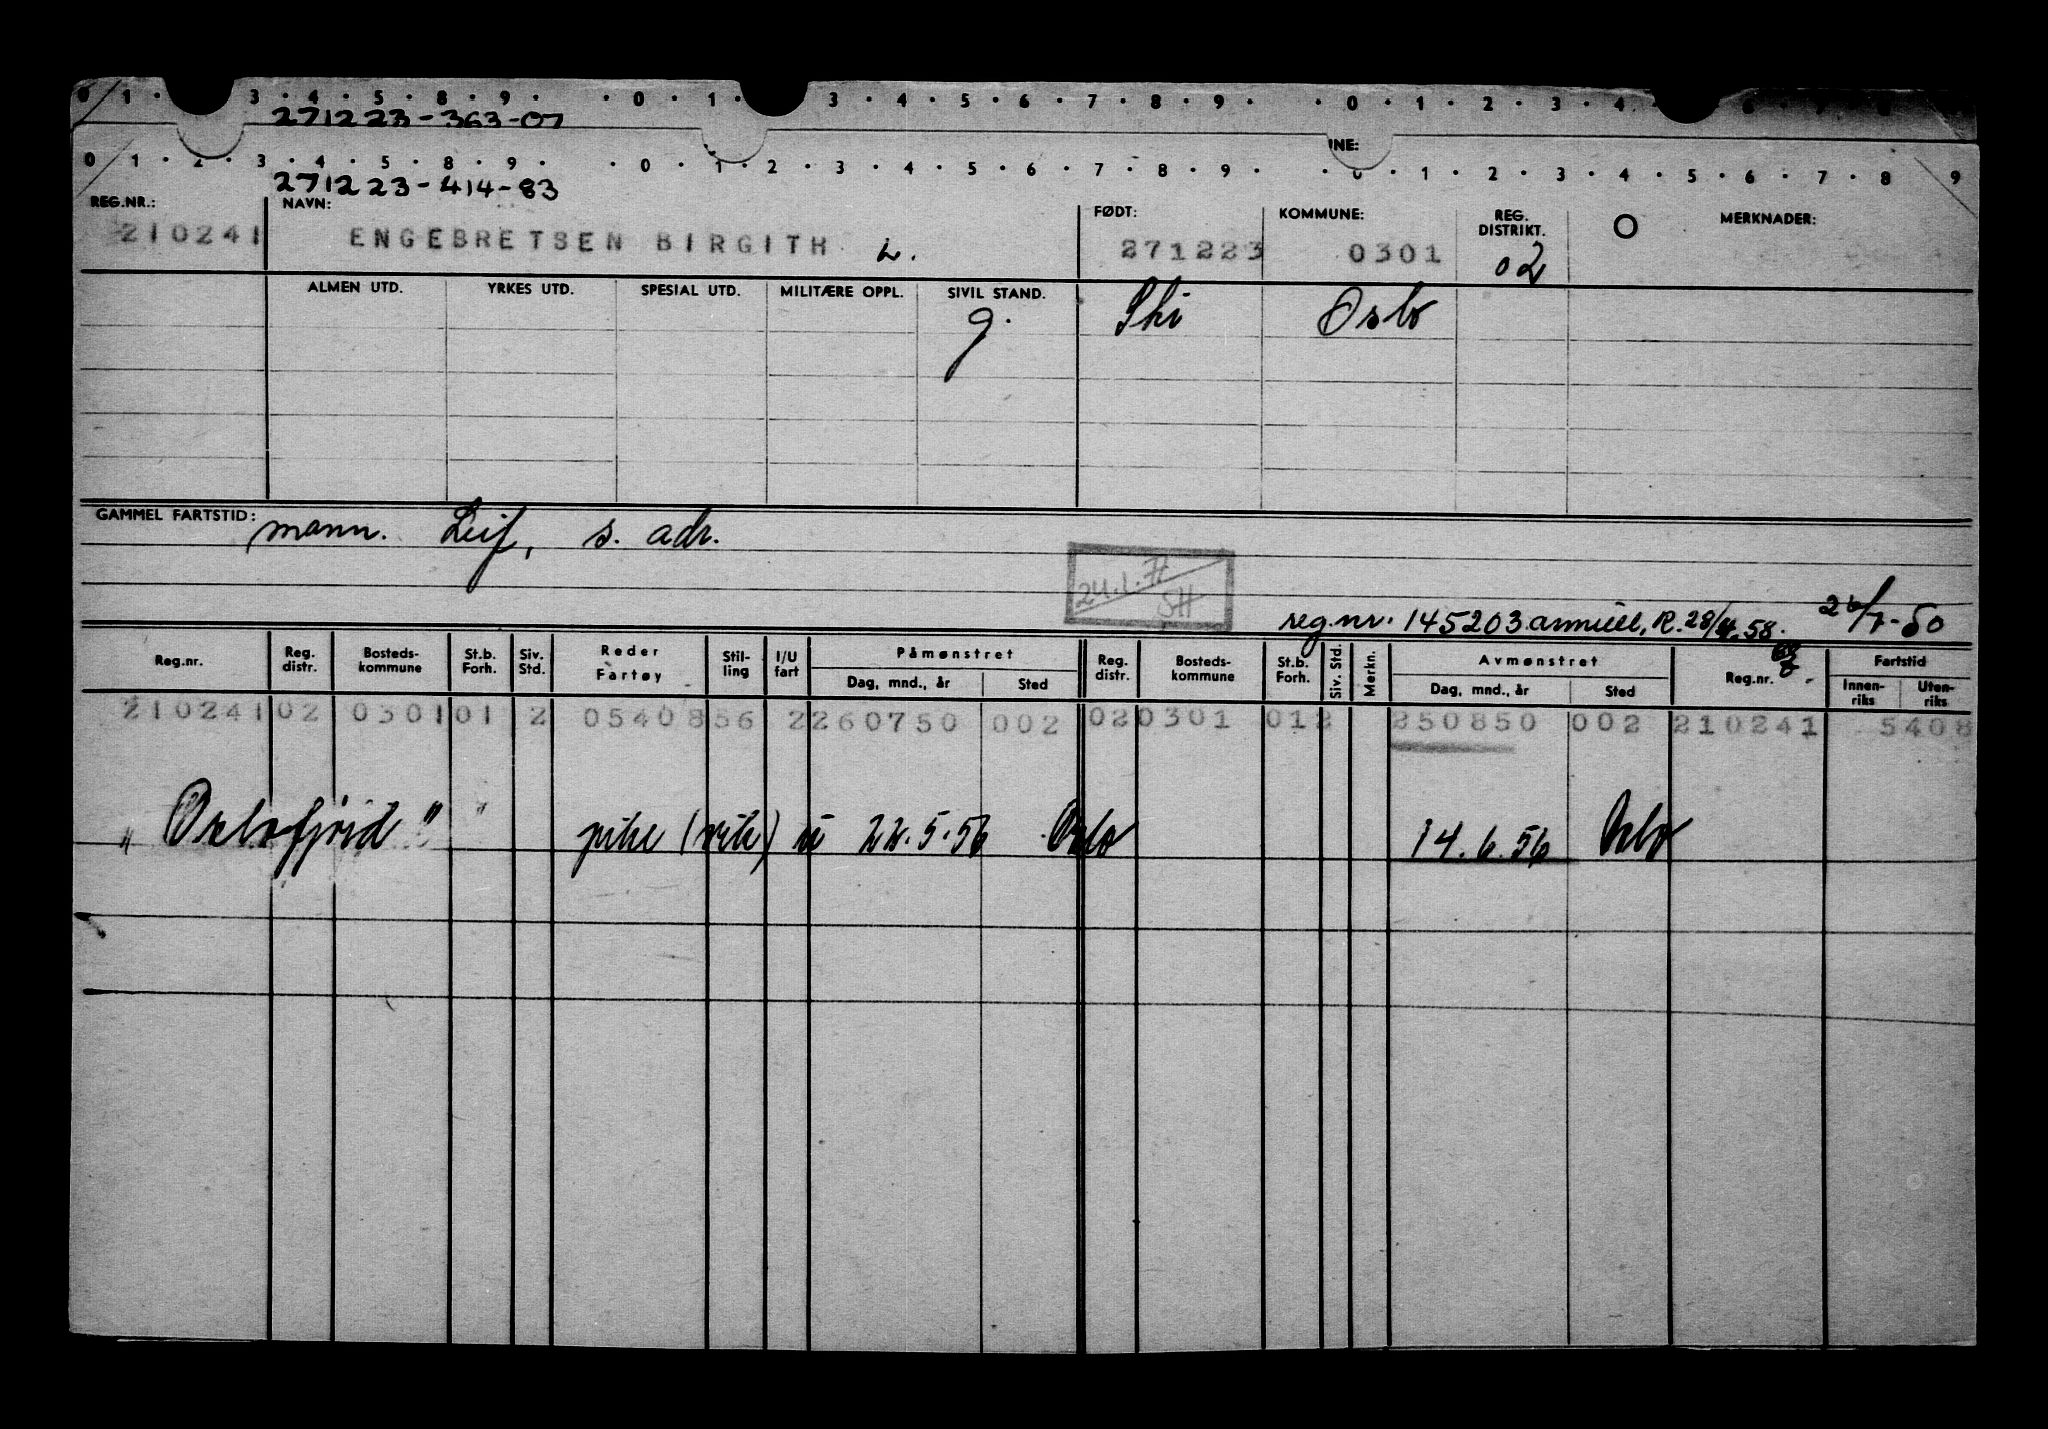 0 1 · 3 · 4 · 5 · 8 · 9 · · 0 · 1 · 3 · 4 · 5 · 6 · 7 · 8 · 9 · · 0 · 1 · 2 · 3 · 4 6 · 7 · 8
271223-363-07
NE:
0 1 · 2 · 3 · 4 · 5 · 8 · 9 · · 0 · 1 · 2 · 3 · 4 · 5 · 6 · 7 · 8 · 9 · · 0 · 1 · 2 · 3 · 4 · 5 · 6 · 7 · 8 9
271223-414-83
REG.NR.: NAVN: FØDT: KOMMUNE: REG. DISTRIKT. O MERKNADER:
210241 ENGEBRETSEN BIRGITH L. 271223 0301 02
ALMEN UTD. YRKES UTD. SPESIAL UTD. MILITÆRE OPPL. SIVIL STAND.
g. Ski Oslo
GAMMEL FARTSTID: mann. Leif, s. adr.
24.1.
SH
reg.nr. 145203 annull, R. 28/4.58. 26/7-50
Reg.nr. Reg. distr. Bosteds-kommune St.b. Forh. Siv. Std. Reder Fartøy Stil-ling I/U fart Påmønstret Dag, mnd., år Sted Reg. distr. Bosteds-kommune St.b. Forh. Siv. Std. Merkn. Avmønstret Dag, mnd., år Sted Reg.nr. Fartstid Innen-riks Uten-riks
210241 02 0301 01 2 05408 56 2 260750 002 02 0301 01 2 250850 002 210241 5408
"Oslofjord" " pike (vik) u 22.5.56 Oslo 14.6.56 Oslo